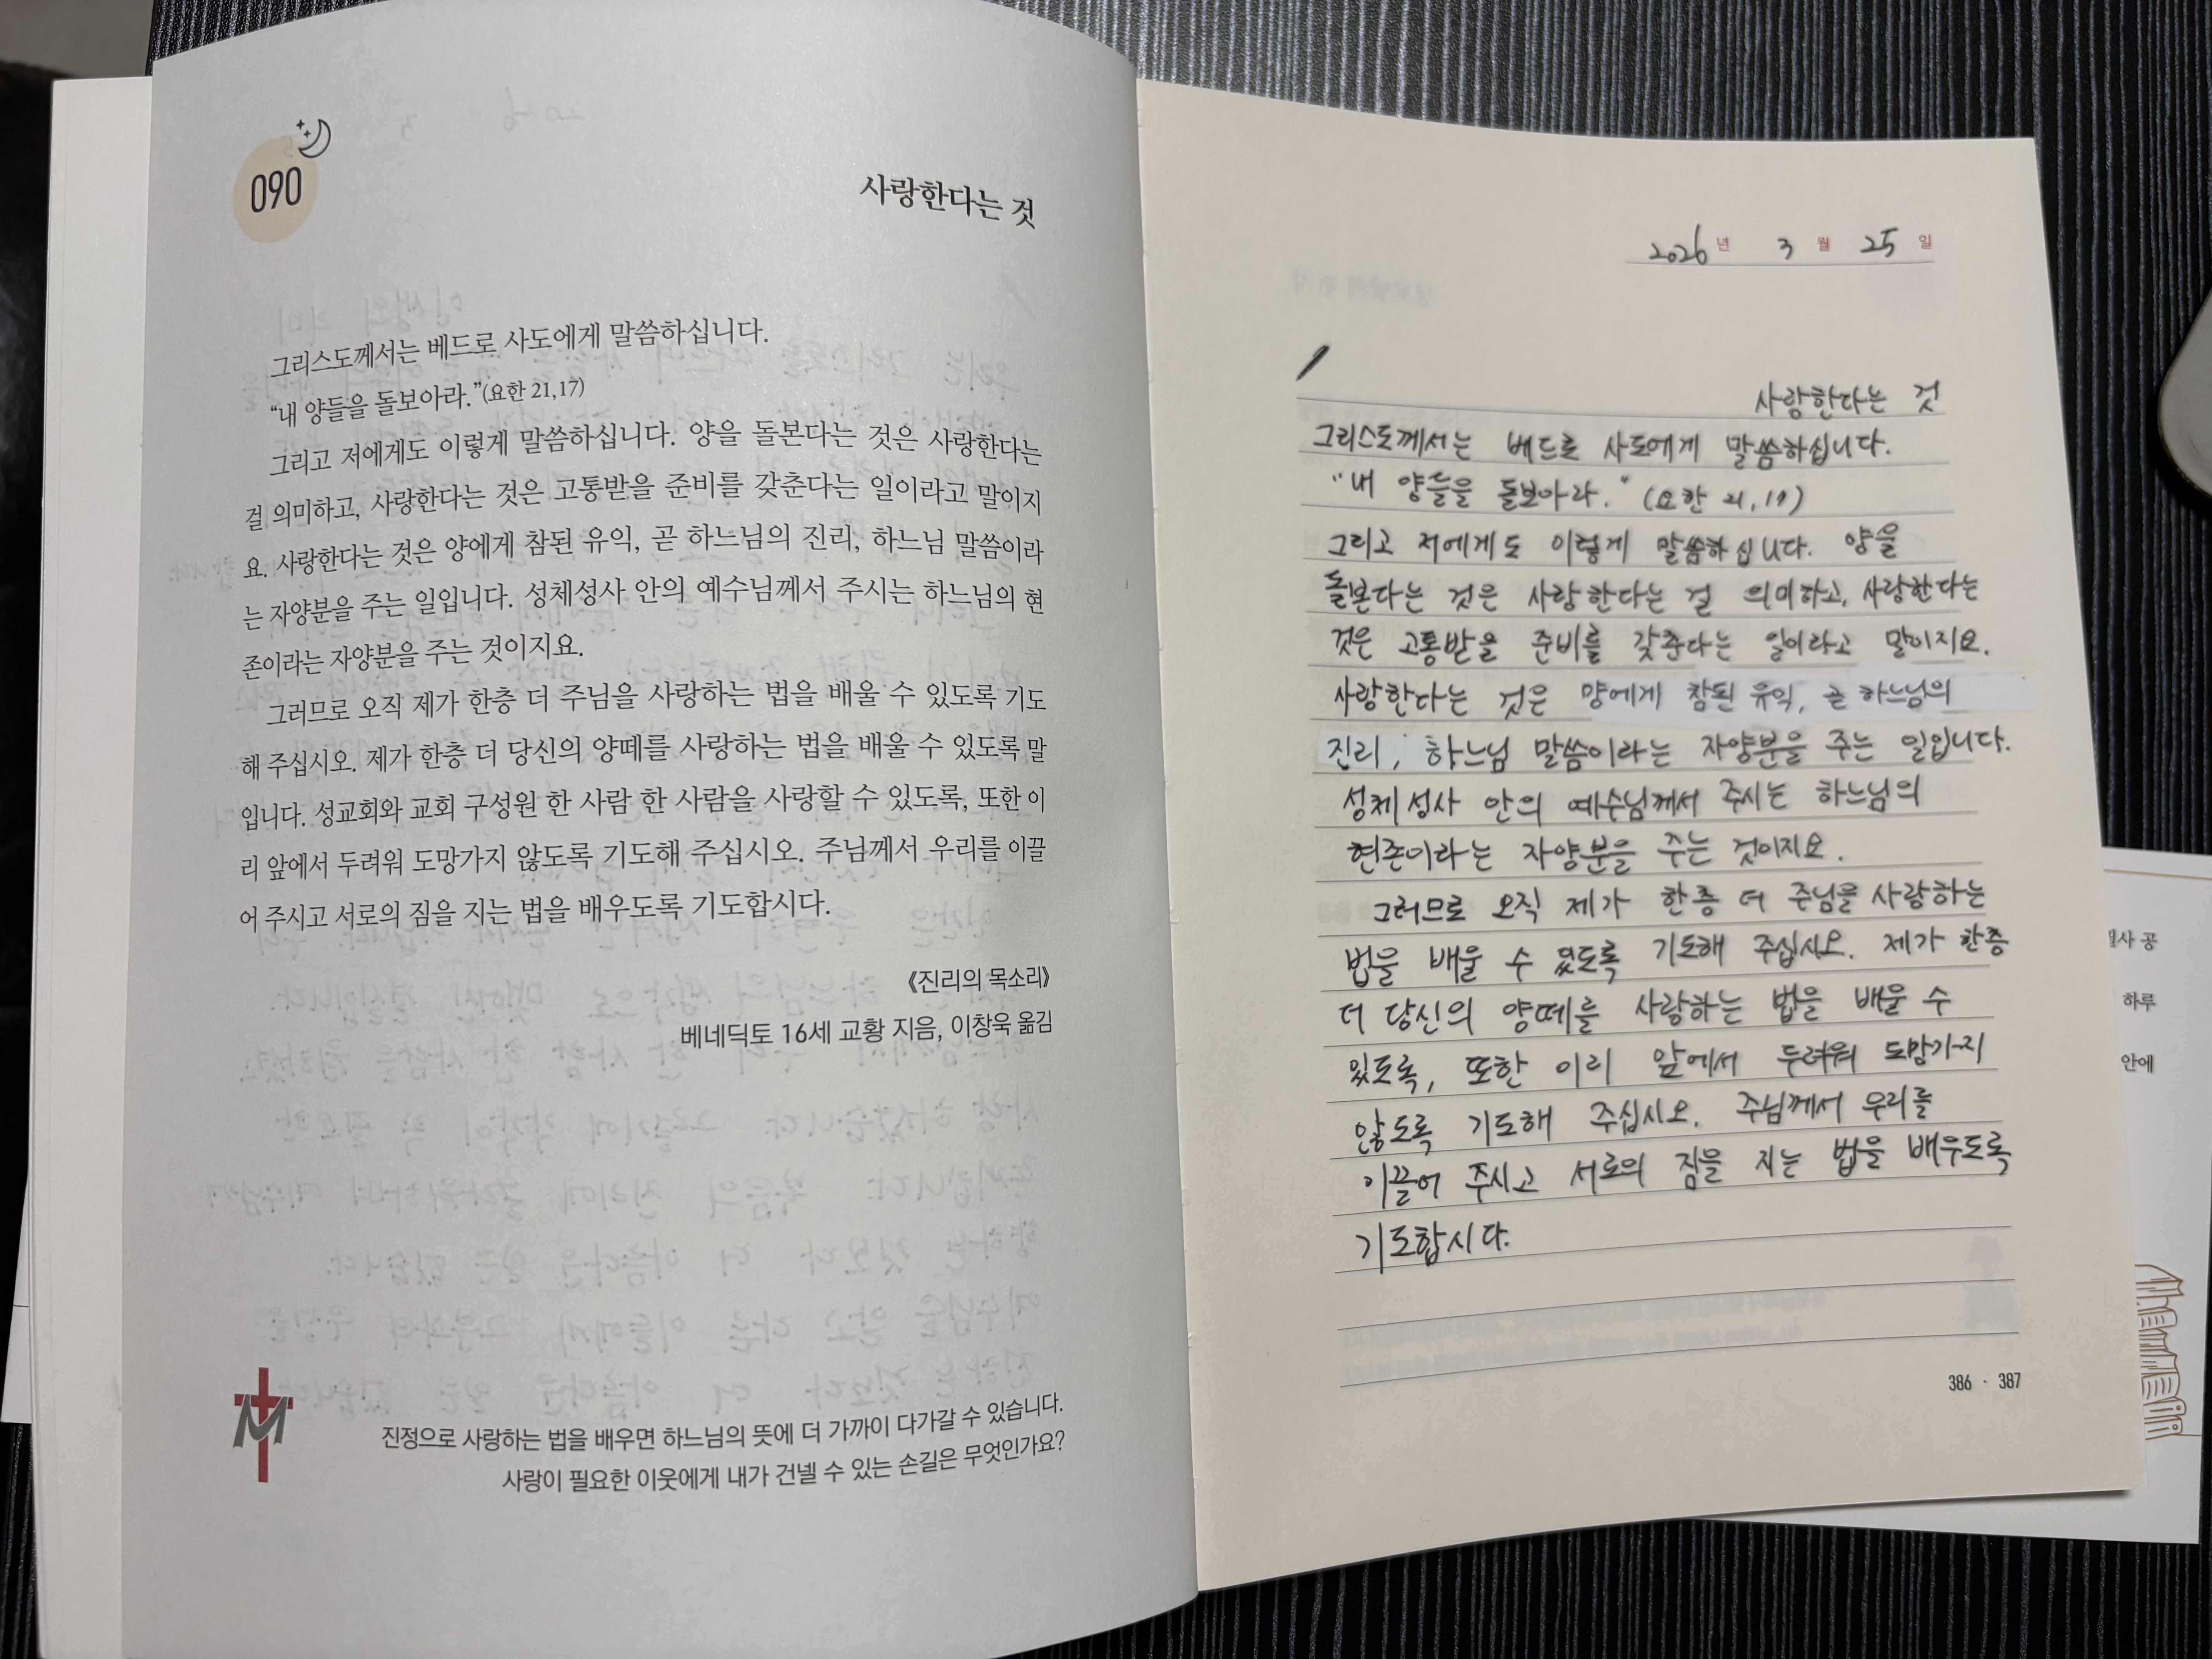 090
사랑한다는 것
그리스도께서는 베드로 사도에게 말씀하십니다.
“내 양들을 돌보아라.”(요한 21,17)
그리고 저에게도 이렇게 말씀하십니다. 양을 돌본다는 것은 사랑한다는
걸 의미하고, 사랑한다는 것은 고통받을 준비를 갖춘다는 일이라고 말이지
요. 사랑한다는 것은 양에게 참된 유익, 곧 하느님의 진리, 하느님 말씀이라
는 자양분을 주는 일입니다. 성체성사 안의 예수님께서 주시는 하느님의 현
존이라는 자양분을 주는 것이지요.
그러므로 오직 제가 한층 더 주님을 사랑하는 법을 배울 수 있도록 기도
해 주십시오. 제가 한층 더 당신의 양떼를 사랑하는 법을 배울 수 있도록 말
입니다. 성교회와 교회 구성원 한 사람 한 사람을 사랑할 수 있도록, 또한 이
리 앞에서 두려워 도망가지 않도록 기도해 주십시오. 주님께서 우리를 이끌
어 주시고 서로의 짐을 지는 법을 배우도록 기도합시다.
《진리의 목소리》
베네딕토 16세 교황 지음, 이창욱 옮김
진정으로 사랑하는 법을 배우면 하느님의 뜻에 더 가까이 다가갈 수 있습니다.
사랑이 필요한 이웃에게 내가 건넬 수 있는 손길은 무엇인가요?
2026년 3월 25일
사랑한다는 것
그리스도께서는 베드로 사도에게 말씀하십니다.
"내 양들을 돌보아라." (요한 21,17)
그리고 저에게도 이렇게 말씀하십니다. 양을
돌본다는 것은 사랑한다는 걸 의미하고, 사랑한다는
것은 고통받을 준비를 갖춘다는 일이라고 말이지요.
사랑한다는 것은 양에게 참된 유익, 곧 하느님의
진리, 하느님 말씀이라는 자양분을 주는 일입니다.
성체성사 안의 예수님께서 주시는 하느님의
현존이라는 자양분을 주는 것이지요.
그러므로 오직 제가 한층 더 주님을 사랑하는
법을 배울 수 있도록 기도해 주십시오. 제가 한층
더 당신의 양떼를 사랑하는 법을 배울 수
있도록, 또한 이리 앞에서 두려워 도망가지
않도록 기도해 주십시오. 주님께서 우리를
이끌어 주시고 서로의 짐을 지는 법을 배우도록
기도합시다.
386 · 387
공
하루
안에